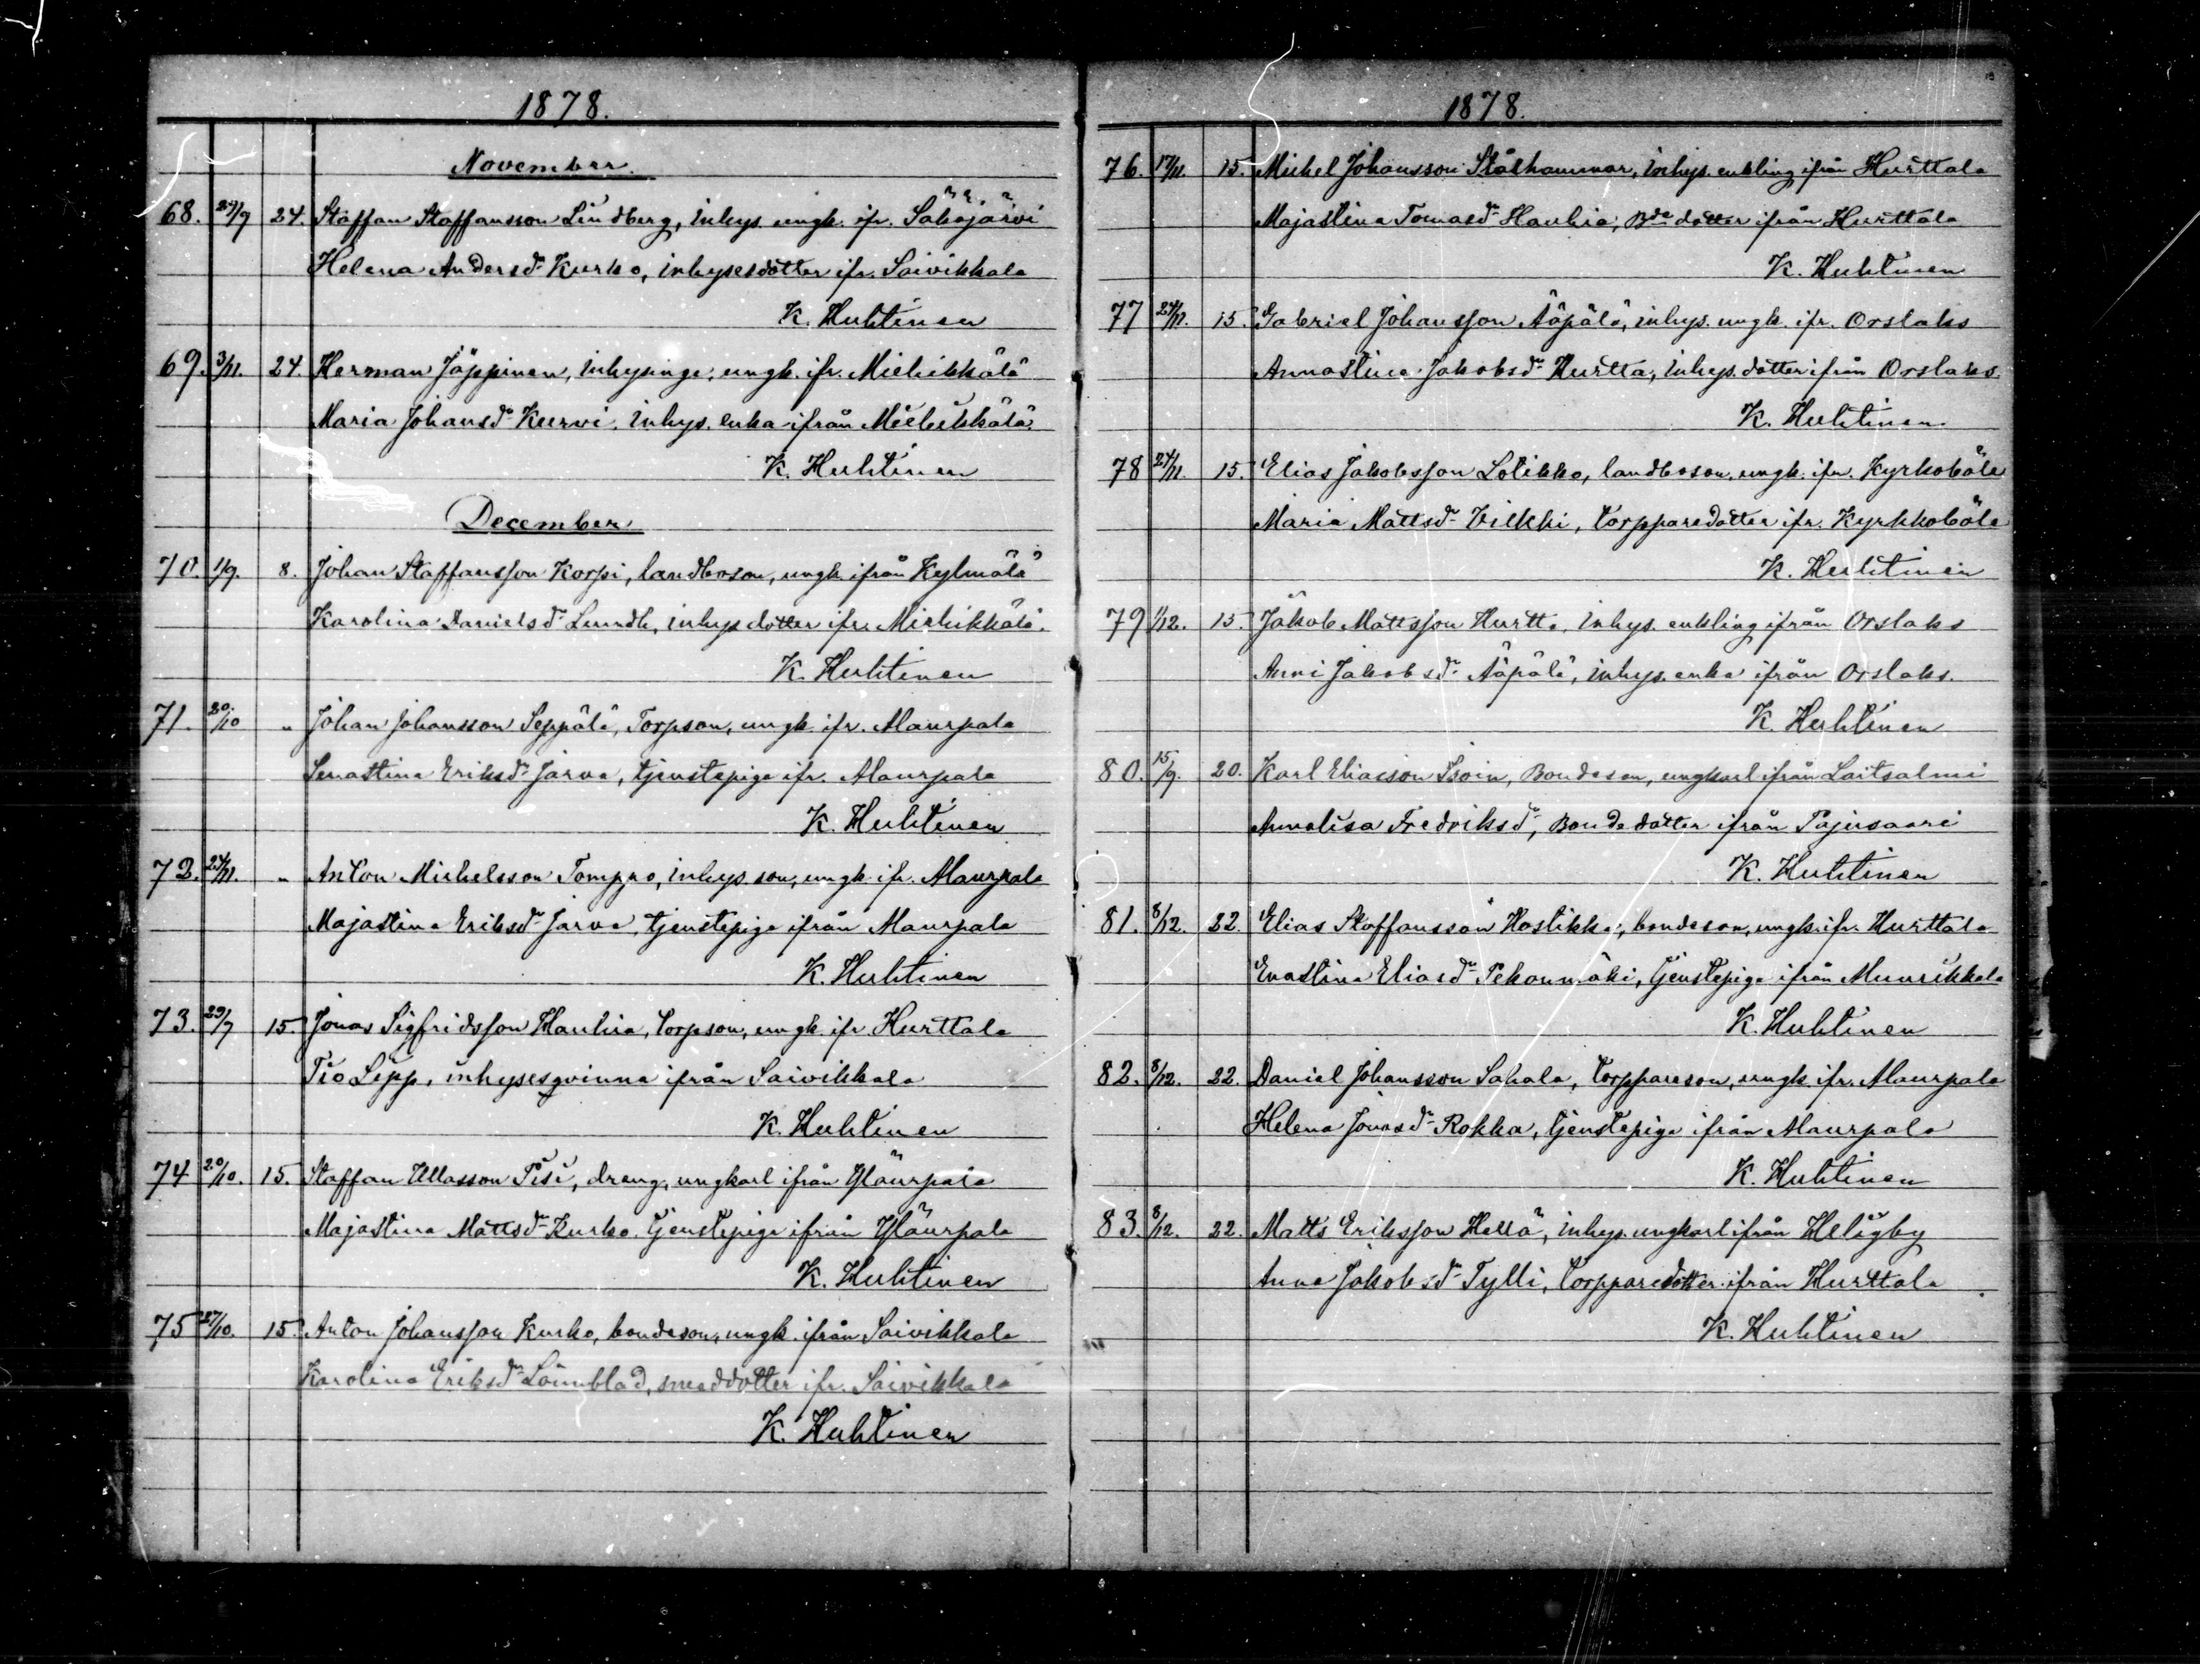 1878.
November.
68. 29/9 24. Staffan Staffansson Lindberg, inhys. ungk. ifr. Säkäjärvi
Helena Andersdr Kurko, inhysesdotter ifr. Saivikkala
K. Huhtinen
69. 3/11. 24. Herman Jäppinen, inhysinge, ungk. ifr. Miehikkälä
Maria Johansdr Kurvi, inhys. enka ifrån Miehikkälä.
K. Huhtinen
December
70. 1/9. 8. Johan Staffansson Korpi, landboson, ungk ifrån Kylmälä
Karolina Danielsdr Lundh, inhys dotter ifr. Miehikkälä.
K. Huhtinen
71. 20/10 " Johan Johansson Seppälä, Torpson, ungk. ifr. Alaurpala
Senastina Eriksdr Jarva, tjenstepiga ifr. Alaurpala
K. Huhtinen
72. 24/11. " Anton Michelsson Tomppo, inhys. son, ungk. ifr. Alaurpala
Majastina Eriksdr Jarva, tjenstepiga ifrån Alaurpala
K. Huhtinen
73. 29/9 15. Jonas Sigfridsson Hauhia, torpson, ungk. ifr. Hurttala
Tio Sipp, inhysesqvinna ifrån Saivikkala
K. Huhtinen
74 20/10. 15. Staffan Ullasson Pisi, dreng, ungkarl ifrån Yläurpala
Majastina Mattsdr Kurko. tjenstepiga ifrån Yläurpala
K. Huhtinen
75 27/10. 15. Anton Johansson Kurko, bondeson, ungk. ifrån Saivikkala
Karolina Eriksdr Lönnblad, smeddotter ifr. Saivikkala
K. Huhtinen
1878.
76. 17/11. 15. Michel Johansson Stålhammar, inhys. enkling ifrån Hurttala
Majastina Tomasdr Hauhia, Bde dotter ifrån Hurttala
K. Huhtinen
77 24/11. 15. Gabriel Johansson Ääpälä, inhys. ungk. ifr. Orslaks
Annastina Jakobsdr Hurtta, inhys. dotter ifrån Orslaks.
K. Huhtinen.
78 24/11. 15. Elias Jakobsson Lotikko, landboson, ungk. ifr. Kyrkoböle
Maria Mattsdr Vilkki, torpparedotter ifr. Kyrkkoböle
K. Huhtinen
79 1/12. 15. Jakob Mattsson Hurtta, inhys. enkling ifrån Orslaks
Anni Jakobsdr Ääpälä, inhys. enka ifrån Orslaks.
K. Huhtinen
80. 15/9. 20. Karl Eliasson Isoin, Bondeson, ungkarl ifrån Laitsalmi
Annalisa Fredriksdr, Bondedotter ifrån Pajusaari
K. Huhtinen
81. 8/12. 22. Elias Staffansson Hostikka, bondeson, ungk. ifr. Hurttala
Evastina Eliasdr Pekonmäki, tjenstepiga ifrån Muurikkala
K. Huhtinen
82. 8/12. 22. Daniel Johansson Sahala, torppareson, ungk. ifr. Alaurpala
Helena Jonasdr Rokka, tjenstepiga ifrån Alaurpala
K. Huhtinen
83. 8/12. 22. Matts Eriksson Hellä, inhys. ungkarl ifrån Heligby
Anna Jakobsdr Tylli, torpparedotter ifrån Hurttala
K. Huhtinen